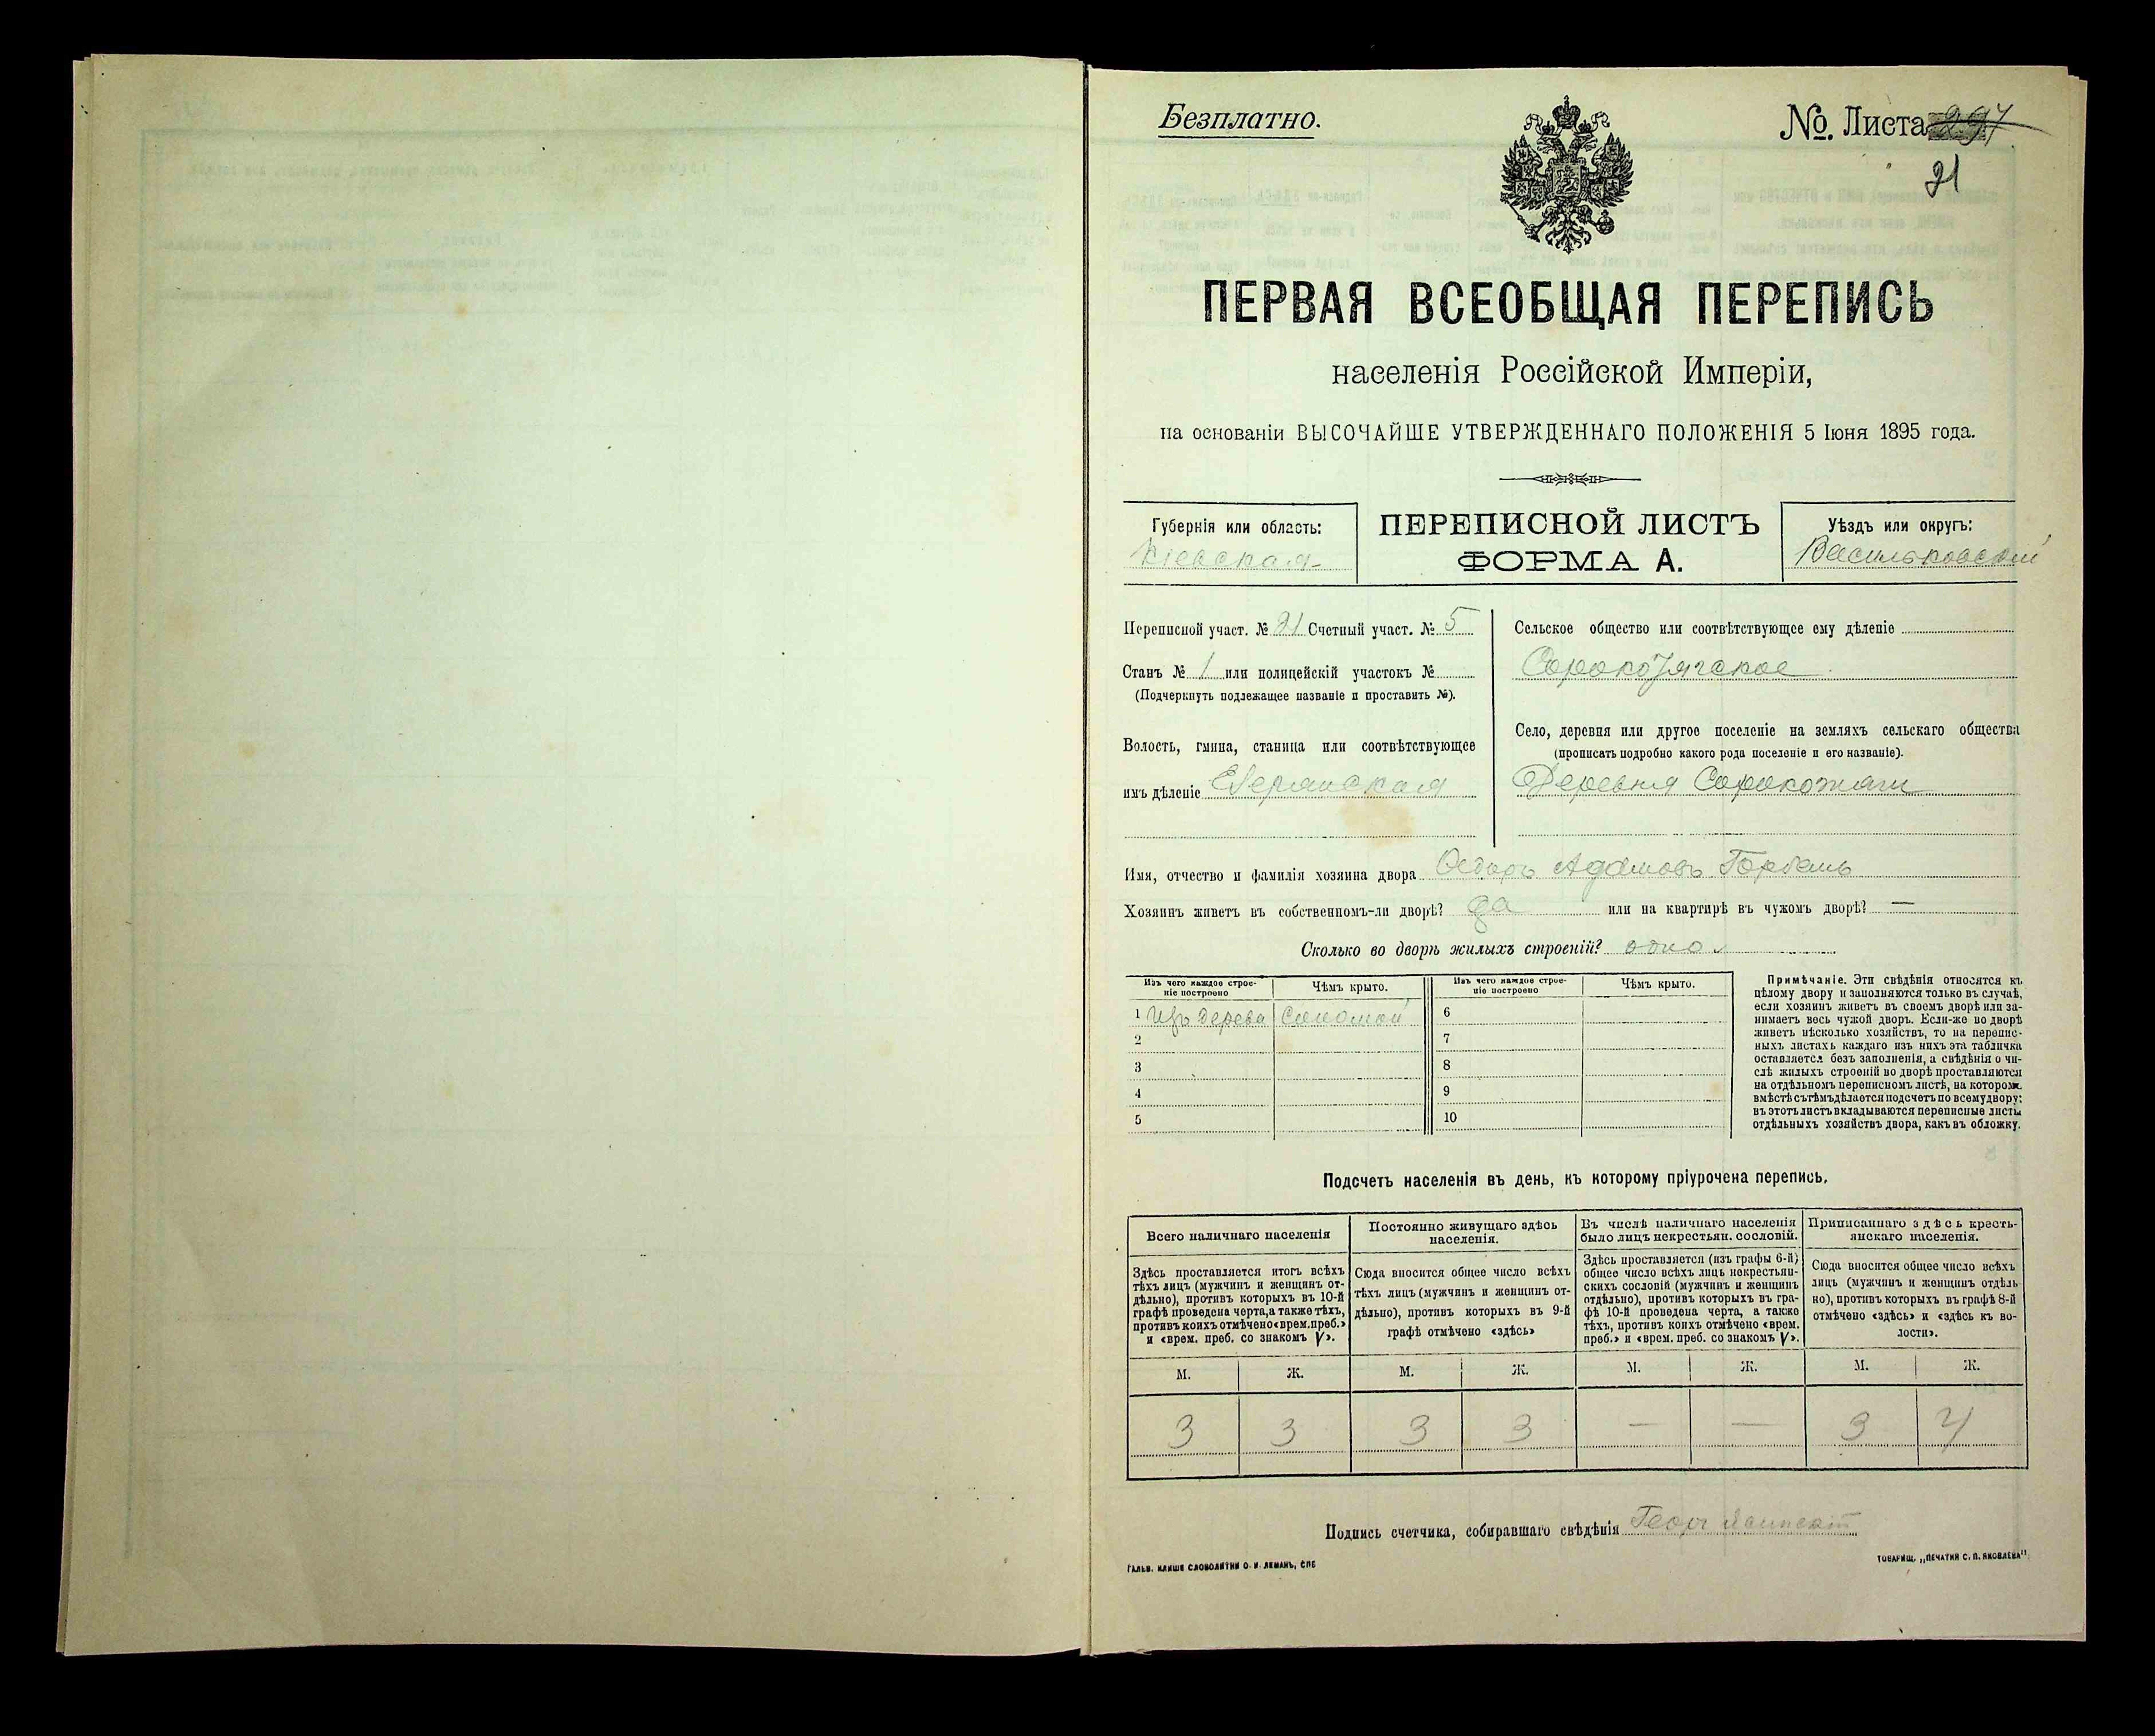 Безплатно.
№. Листа 297
21
ПЕРВАЯ ВСЕОБЩАЯ ПЕРЕПИСЬ
населенія Россійской Имперіи,
на основаніи ВЫСОЧАЙШЕ УТВЕРЖДЕННАГО ПОЛОЖЕНІЯ 5 Іюня 1895 года.
Губернія или область:
Кіевская
ПЕРЕПИСНОЙ ЛИСТЪ
ФОРМА А.
Уѣздъ или округъ:
Васильковскій
Переписной участ. № 21 Счетный участ. № 5
Станъ № 1 или полицейскій участокъ №
(Подчеркнуть подлежащее названіе и проставить №).
Волость, гмина, станица или соотвѣтствующее
имъ дѣленіе
Сельское общество или соотвѣтствующее ему дѣленіе
Село, деревня или другое поселеніе на земляхъ сельскаго общества
(прописать подробно какого рода поселеніе и его названіе).
Деревня Сорокотяги
Имя, отчество и фамилія хозяина двора Адамовъ Горбань
Хозяинъ живетъ въ собственномъ-ли дворѣ? да или на квартирѣ въ чужомъ дворѣ? —
Сколько во дворѣ жилыхъ строеній? одно
Изъ чего каждое строе-
ніе построено
Чѣмъ крыто.
Изъ чего каждое строе-
ніе построено
Чѣмъ крыто.
1 Изъ дерева Соломой
2
3
4
5
6
7
8
9
10
Примѣчаніе. Эти свѣдѣнія относятся къ
цѣлому двору и заполняются только въ случаѣ,
если хозяинъ живетъ въ своемъ дворѣ или за-
нимаетъ весь чужой дворъ. Если-же во дворѣ
живетъ нѣсколько хозяйствъ, то на перепис-
ныхъ листахъ каждаго изъ нихъ эта табличка
оставляется безъ заполненія, а свѣдѣнія о чи-
слѣ жилыхъ строеній во дворѣ проставляются
на отдѣльномъ переписномъ листѣ, на которомъ
вмѣстѣ съ тѣмъ дѣлается подсчетъ по всему двору;
въ этотъ листъ вкладываются переписные листы
отдѣльныхъ хозяйствъ двора, какъ въ обложку.
Подсчетъ населенія въ день, къ которому пріурочена перепись.
Всего наличнаго населенія
Здѣсь проставляется итогъ всѣхъ
тѣхъ лицъ (мужчинъ и женщинъ от-
дѣльно), противъ которыхъ въ 10-й
графѣ проведена черта, а также тѣхъ,
противъ коихъ отмѣчено «врем. преб.»
и «врем. преб. со знакомъ V».
Постоянно живущаго здѣсь
населенія.
Сюда вносится общее число всѣхъ
тѣхъ лицъ (мужчинъ и женщинъ от-
дѣльно), противъ которыхъ въ 9-й
графѣ отмѣчено «здѣсь»
Въ числѣ наличнаго населенія
было лицъ некрестьян. сословій.
Здѣсь проставляется (изъ графы 6-й)
общее число всѣхъ лицъ некрестьян-
скихъ сословій (мужчинъ и женщинъ
отдѣльно), противъ которыхъ въ гра-
фѣ 10-й проведена черта, а также
тѣхъ, противъ коихъ отмѣчено «врем.
преб.» и «врем. преб. со знакомъ V».
Приписаннаго здѣсь кресть-
янскаго населенія.
Сюда вносится общее число всѣхъ
лицъ (мужчинъ и женщинъ отдѣль-
но), противъ которыхъ въ графѣ 8-й
отмѣчено «здѣсь» и «здѣсь къ во-
лости».
М. Ж. М. Ж. М. Ж. М. Ж.
3 3 3 3 — — 3 4
Подпись счетчика, собиравшаго свѣдѣнія
ГАЛЬВ. КЛИШЕ СЛОВОЛИТНИ О. И. ЛЕМАНЪ, СПБ
ТОВАРИЩ. „ПЕЧАТНЯ С. П. ЯКОВЛЕВА"